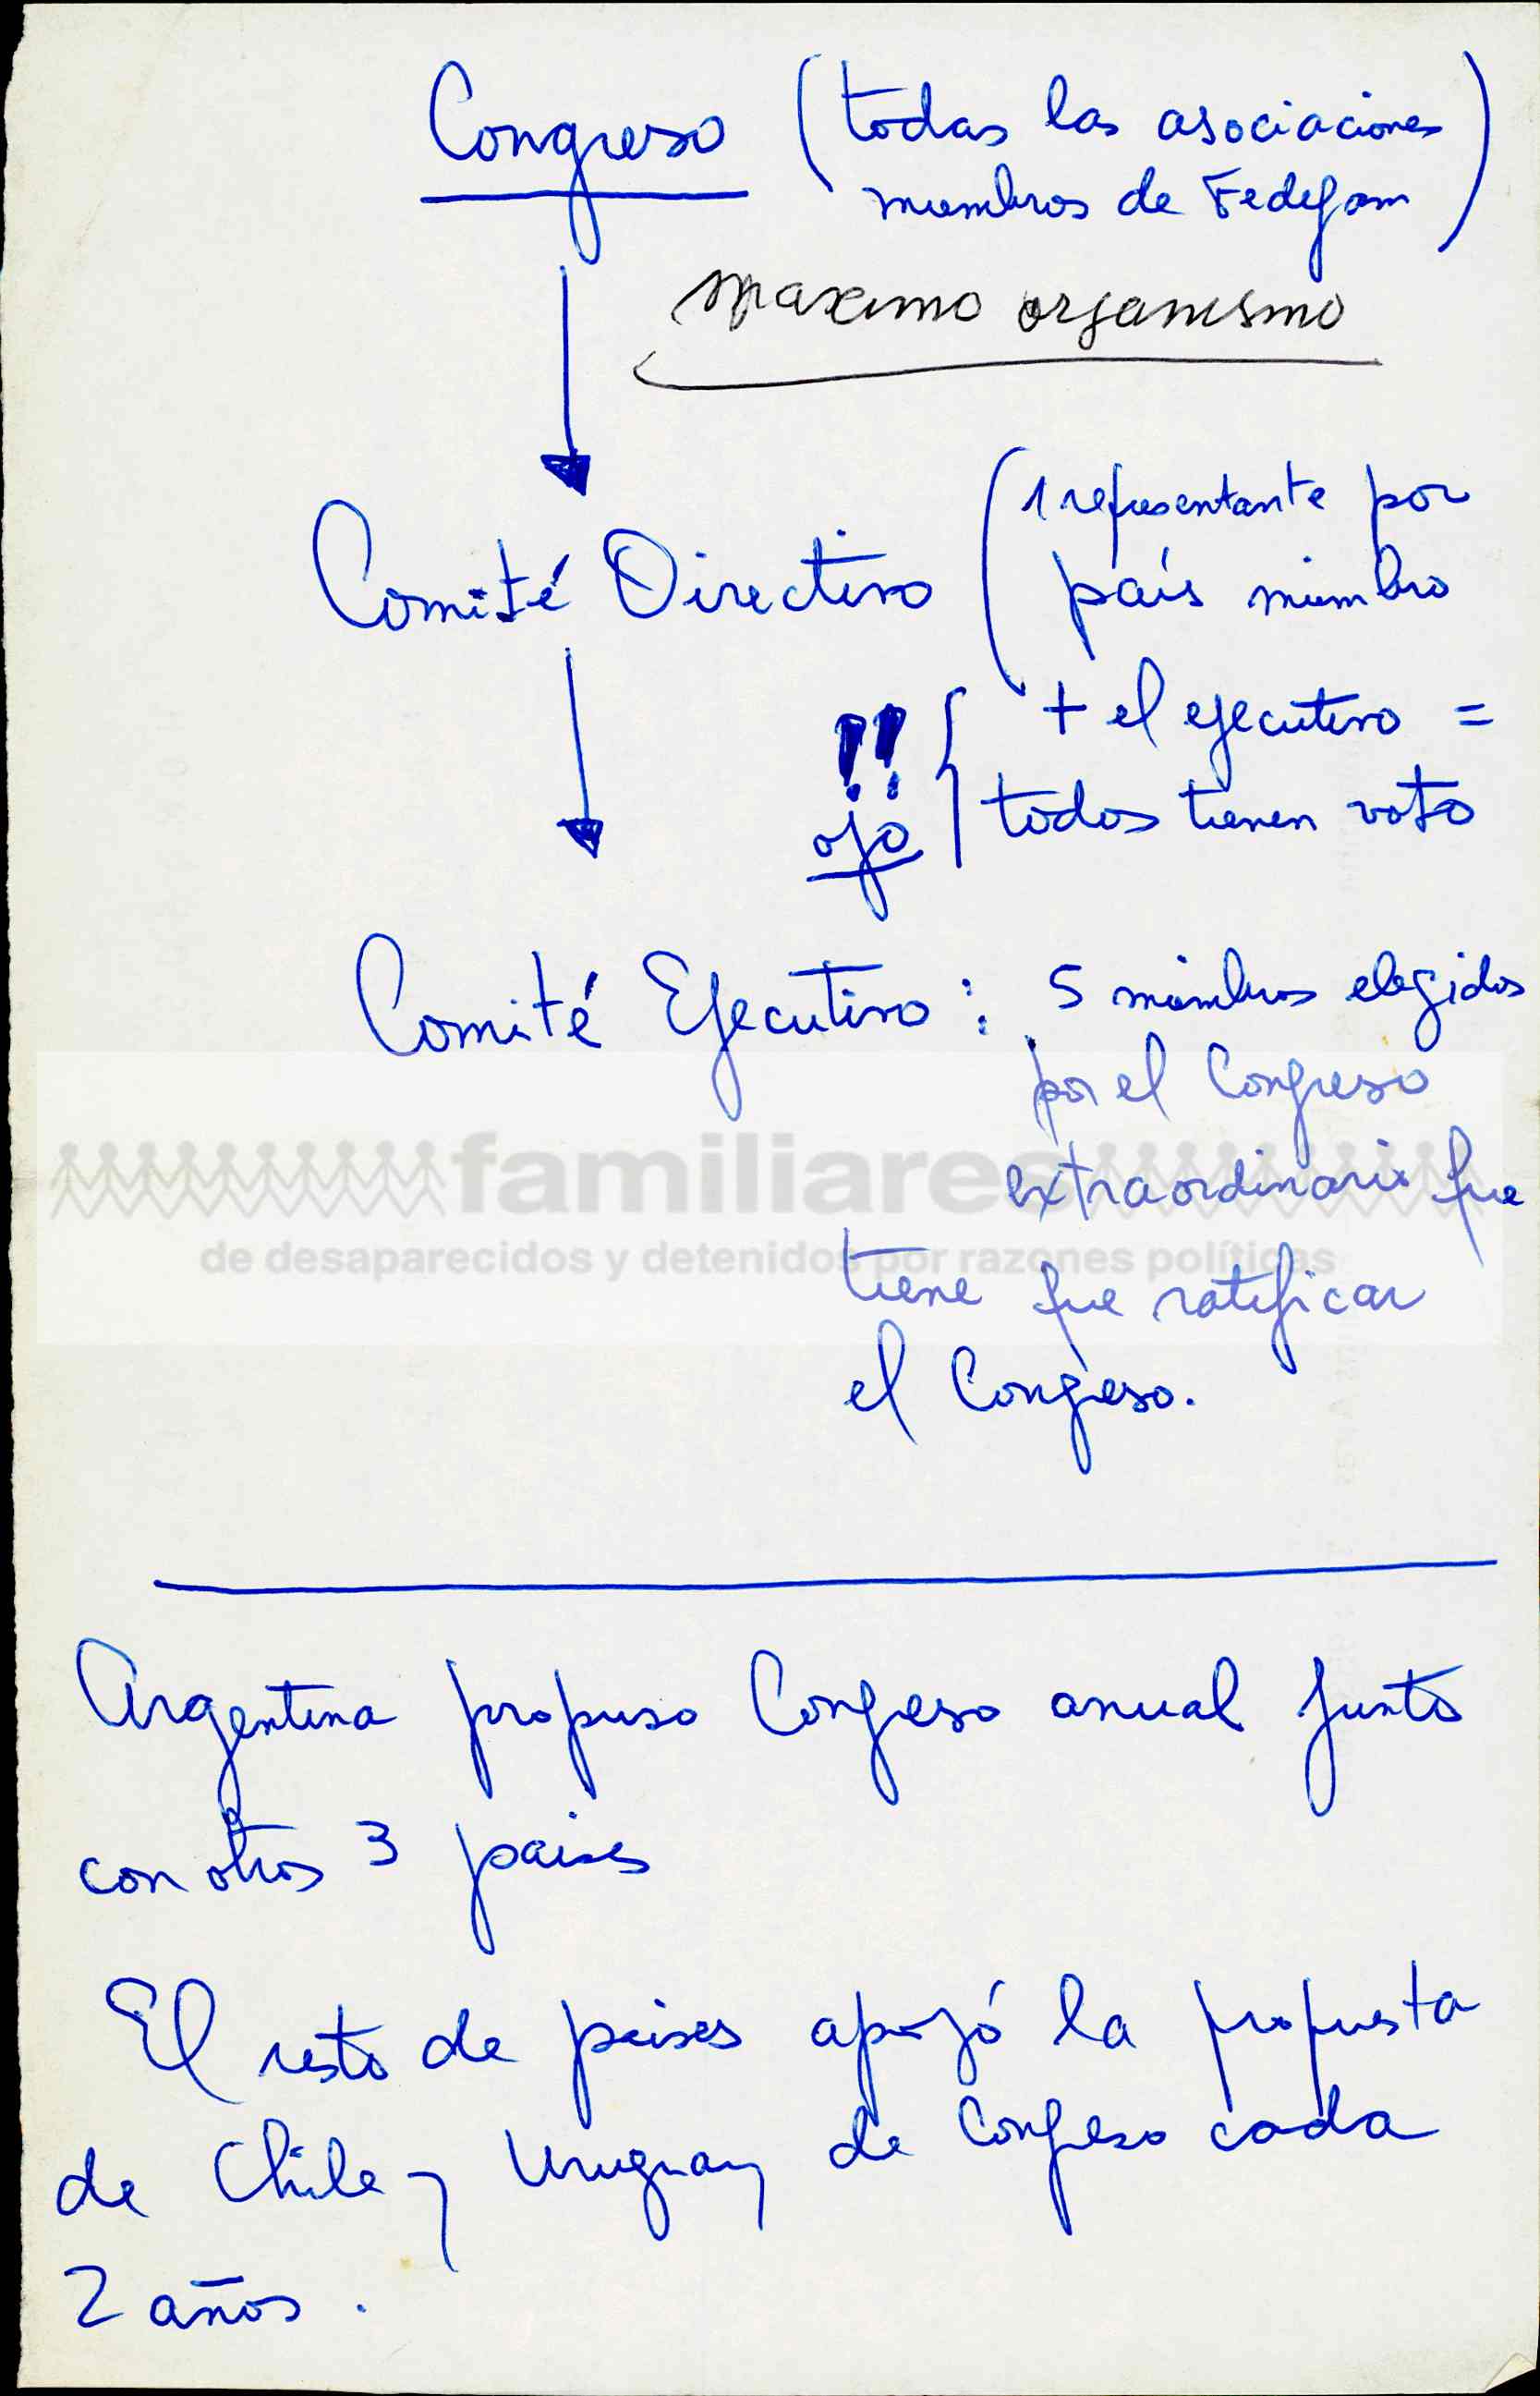 Congreso (todas las asociaciones
miembros de Fedefam)
maximo organismo
Comité Directivo (1 representante por
país miembro
+ el ejecutivo =
!! ojo { todos tienen voto
Comité Ejecutivo : 5 miembros elegidos
por el Congreso
extraordinario que
tiene que ratificar
el Congreso.
familiares
de desaparecidos y detenidos por razones políticas
Argentina propuso Congreso anual junto
con otros 3 paises
El resto de paises apoyó la propuesta
de Chile y Uruguay de Congreso cada
2 años.